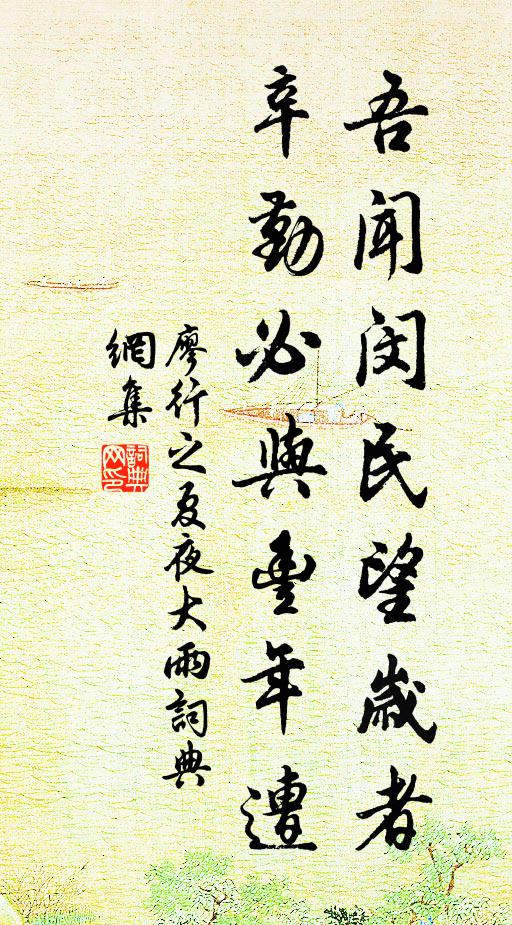 吾聞閔民望歲者
辛勤必與豐年遭
廖行之夏夜大雨詞典
網集
詞典
网印